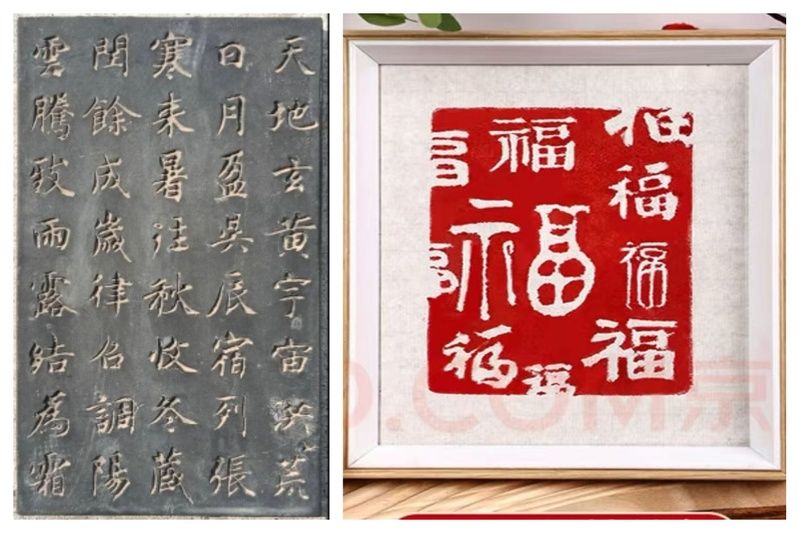 天地玄黄宇宙洪荒
日月盈昃辰宿列張
寒来暑往秋收冬藏
閏餘成歲律召調陽
雲騰致雨露結為霜
福
福
福
福
福
福
福
福
福
福
.COM京